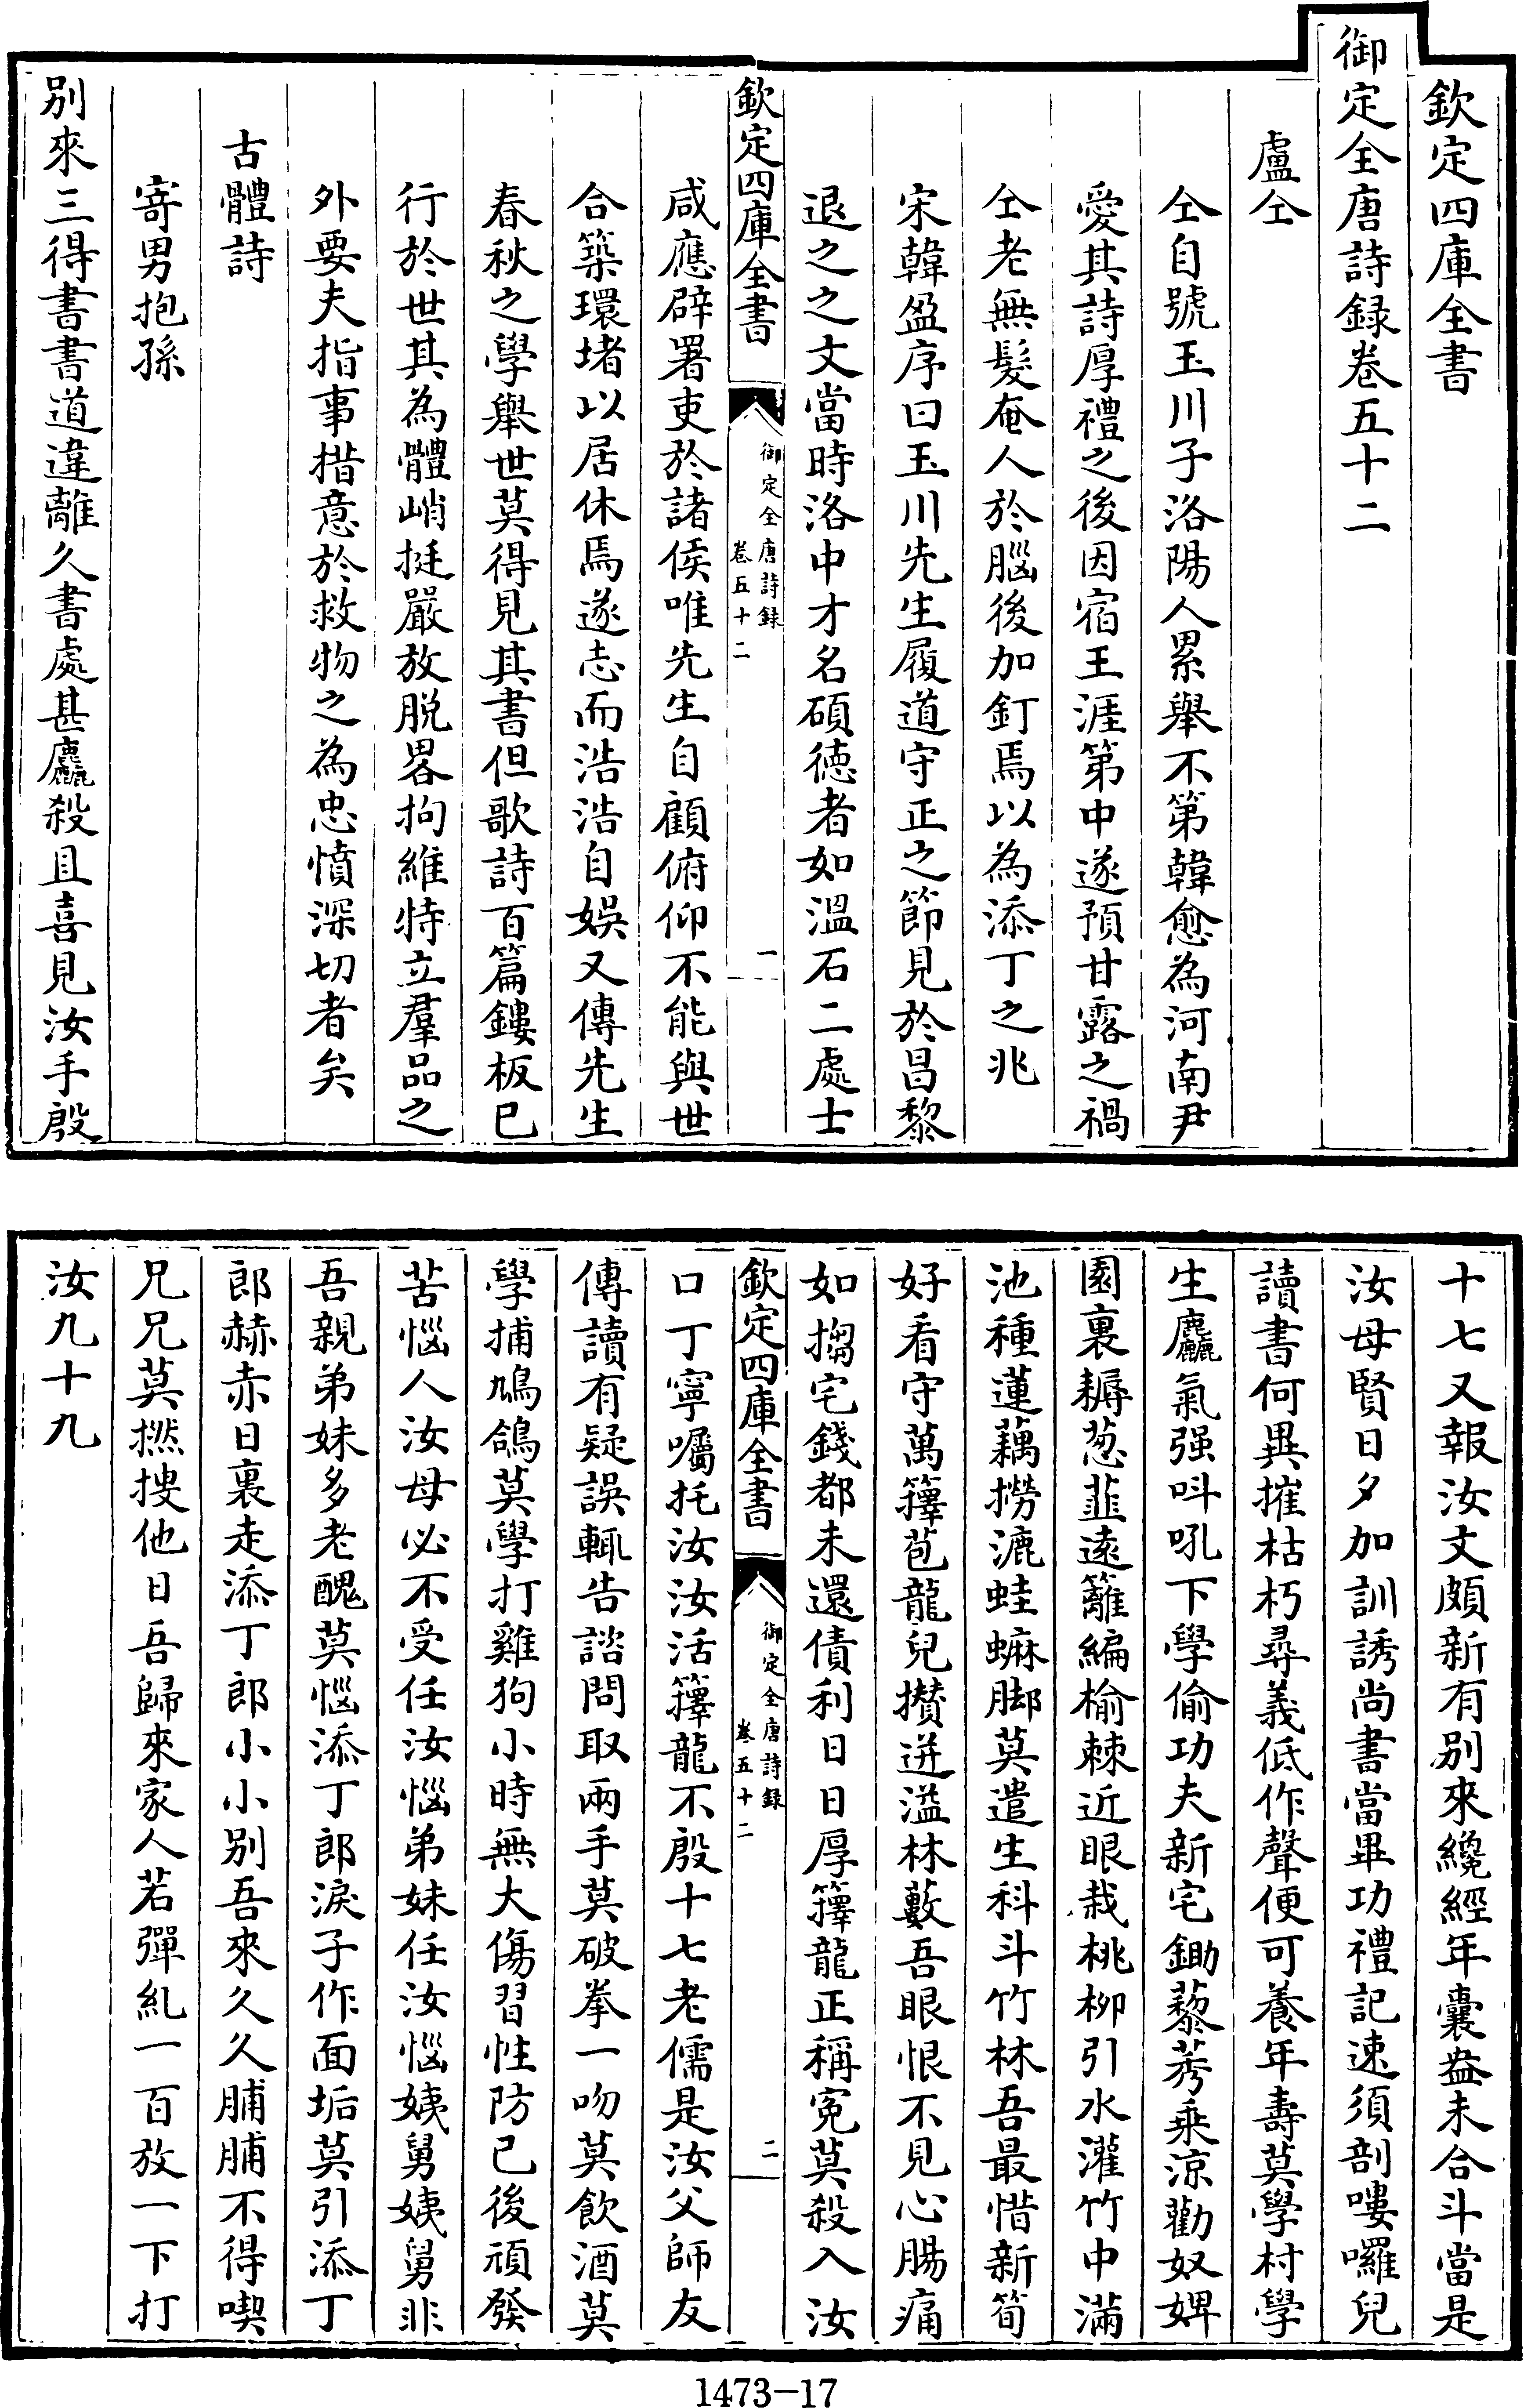 欽定四庫全書
御定全唐詩録卷五十二
盧仝
仝自號玉川子洛陽人累舉不第韓愈為河南尹
愛其詩厚禮之後因宿王涯第中遂預甘露之禍
仝老無髮奄人於腦後加釘焉以為添丁之兆
宋韓盈序曰玉川先生履道守正之節見於昌黎
退之之文當時洛中才名碩徳者如溫石二處士
欽定四庫全書
御定全唐詩録
卷五十二
一
咸應辟署吏於諸侯唯先生自顧俯仰不能與世
合築環堵以居休焉遂志而浩浩自娛又傳先生
春秋之學舉世莫得見其書但歌詩百篇鏤板已
行於世其為體峭挺嚴放脱畧拘維特立羣品之
外要夫指事措意於救物之為忠憤深切者矣
古體詩
寄男抱孫
别來三得書書道違離久書處甚麤殺且喜見汝手殷
十七又報汝文頗新有别來纔經年囊盎未合斗當是
汝母賢日夕加訓誘尚書當畢功禮記速須剖嘍囉兒
讀書何異摧枯朽尋義低作聲便可養年壽莫學村學
生麤氣强呌吼下學偷功夫新宅鋤藜莠乗涼勸奴婢
園裏耨葱韮逺籬編榆棘近眼栽桃柳引水灌竹中滿
池種蓮藕撈漉蛙蟵脚莫遣生科斗竹林吾最惜新筍
好看守萬籜苞龍兒攅迸溢林藪吾眼恨不見心腸痛
如搊宅錢都未還債利日日厚籜龍正稱寃莫殺入汝
欽定四庫全書
御定全唐詩録
卷五十二
二
口丁寧囑托汝汝活籜龍不殷十七老儒是汝父師友
傳讀有疑誤輒告諮問取兩手莫破拳一吻莫飲酒莫
學捕鳩鴿莫學打雞狗小時無大傷習性防已後頑發
苦惱人汝母必不受任汝惱弟妹任汝惱姨舅姨舅非
吾親弟妹多老醜莫惱添丁郎淚子作面垢莫引添丁
郎赫赤日裏走添丁郎小小别吾來久久脯脯不得喫
兄兄莫撚搜他日吾歸來家人若彈糺一百放一下打
汝九十九
1473-17